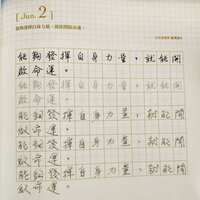 [ Jun. 2 ]
能夠發揮自身力量，就能開啟命運。
能夠發揮自身力量，就能開
啟命運。
能夠發揮自身力量，就能開
啟命運。
能夠發揮自身力量，就能開
啟命運。
能夠發揮自身力量，就能開
啟命運。